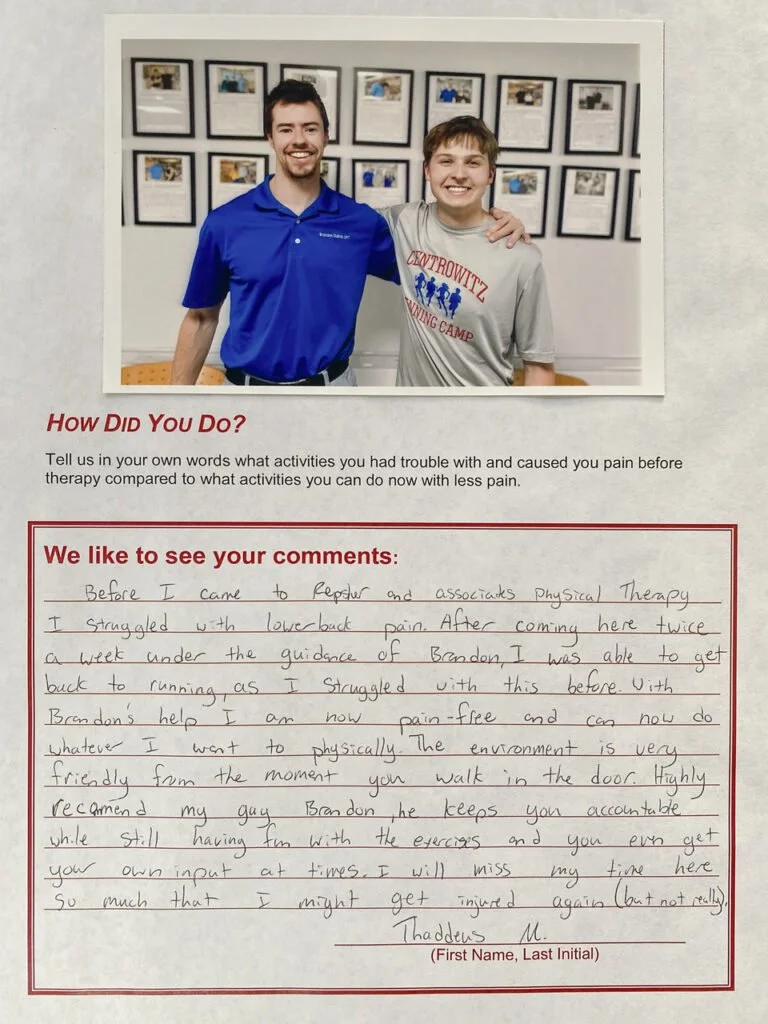 CENTROWITZ
NNING CAMP
HOW DID YOU DO?
Tell us in your own words what activities you had trouble with and caused you pain before
therapy compared to what activities you can do now with less pain.
We like to see your comments:
Before I came to Repster and associates Physical Therapy
I struggled with lower back pain. After coming here twice
a week under the guidance of Brandon, I was able to get
back to running, as I struggled with this before. With
Brandon's help I am now pain-free and can now do
whatever I want to physically. The environment is very
friendly from the moment you walk in the door. Highly
recomend my guy Brandon, he keeps you accountable
while still having fun with the exercises and you even get
your own input at times. I will miss my time here
so much that I might get injured again (but not really).
Thaddeus M.
(First Name, Last Initial)